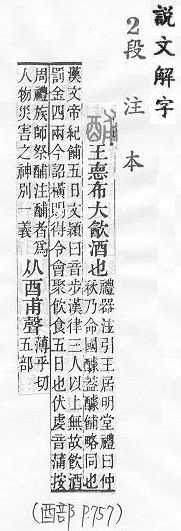 説文解字
2段注本
酺 王悳布大㱃酒也
禮器注引王居明堂禮曰仲
秋乃命國醵葢醵酺略同也
漢文帝紀酺五日文穎曰音步漢律三人以上無故飲酒
罰金四兩今詔橫賜得令會聚飲食五日也伏虔音蒲按
周禮族師祭酺注酺者爲
人物災害之神別一義
从酉甫聲
薄乎切
五部
(酉部 P.757)